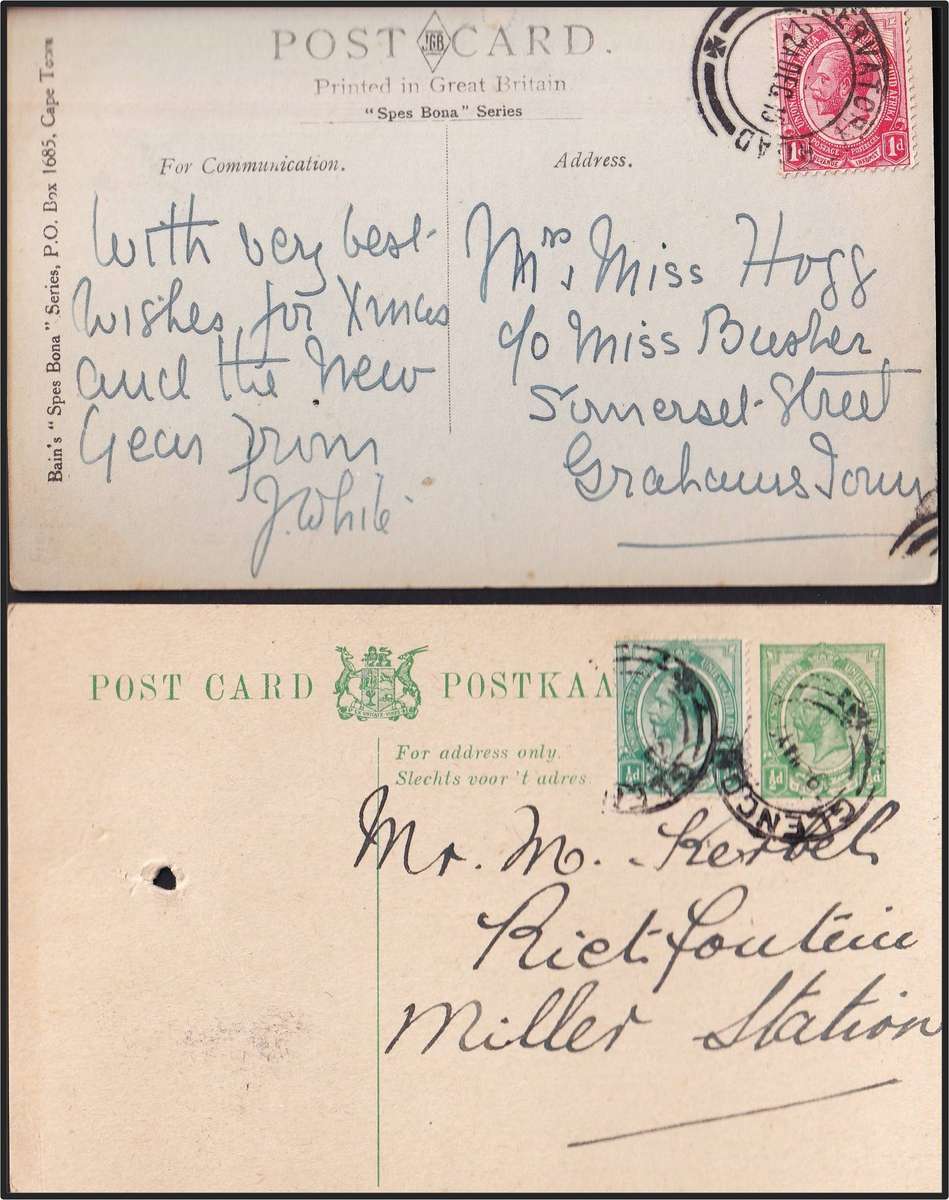 POST JGB CARD.
Printed in Great Britain.
"Spes Bona" Series
Bain's "Spes Bona" Series, P.O. Box 1685, Cape Town
For Communication.
Address.
With very best
wishes, for Xmas
and the New
Year from
J. White
Mrs, Miss Hogg
c/o Miss Busher
Somerset Street
GrahamsTown
OBSERVATORY ROAD
UNION OF SOUTH AFRICA
POSTAGE POSTZEGEL
1d 1d
POST CARD POSTKAA
For address only.
Slechts voor 't adres.
½d
½d ½d
GLENCO
Mr. M.
Rietfontein
Miller Station